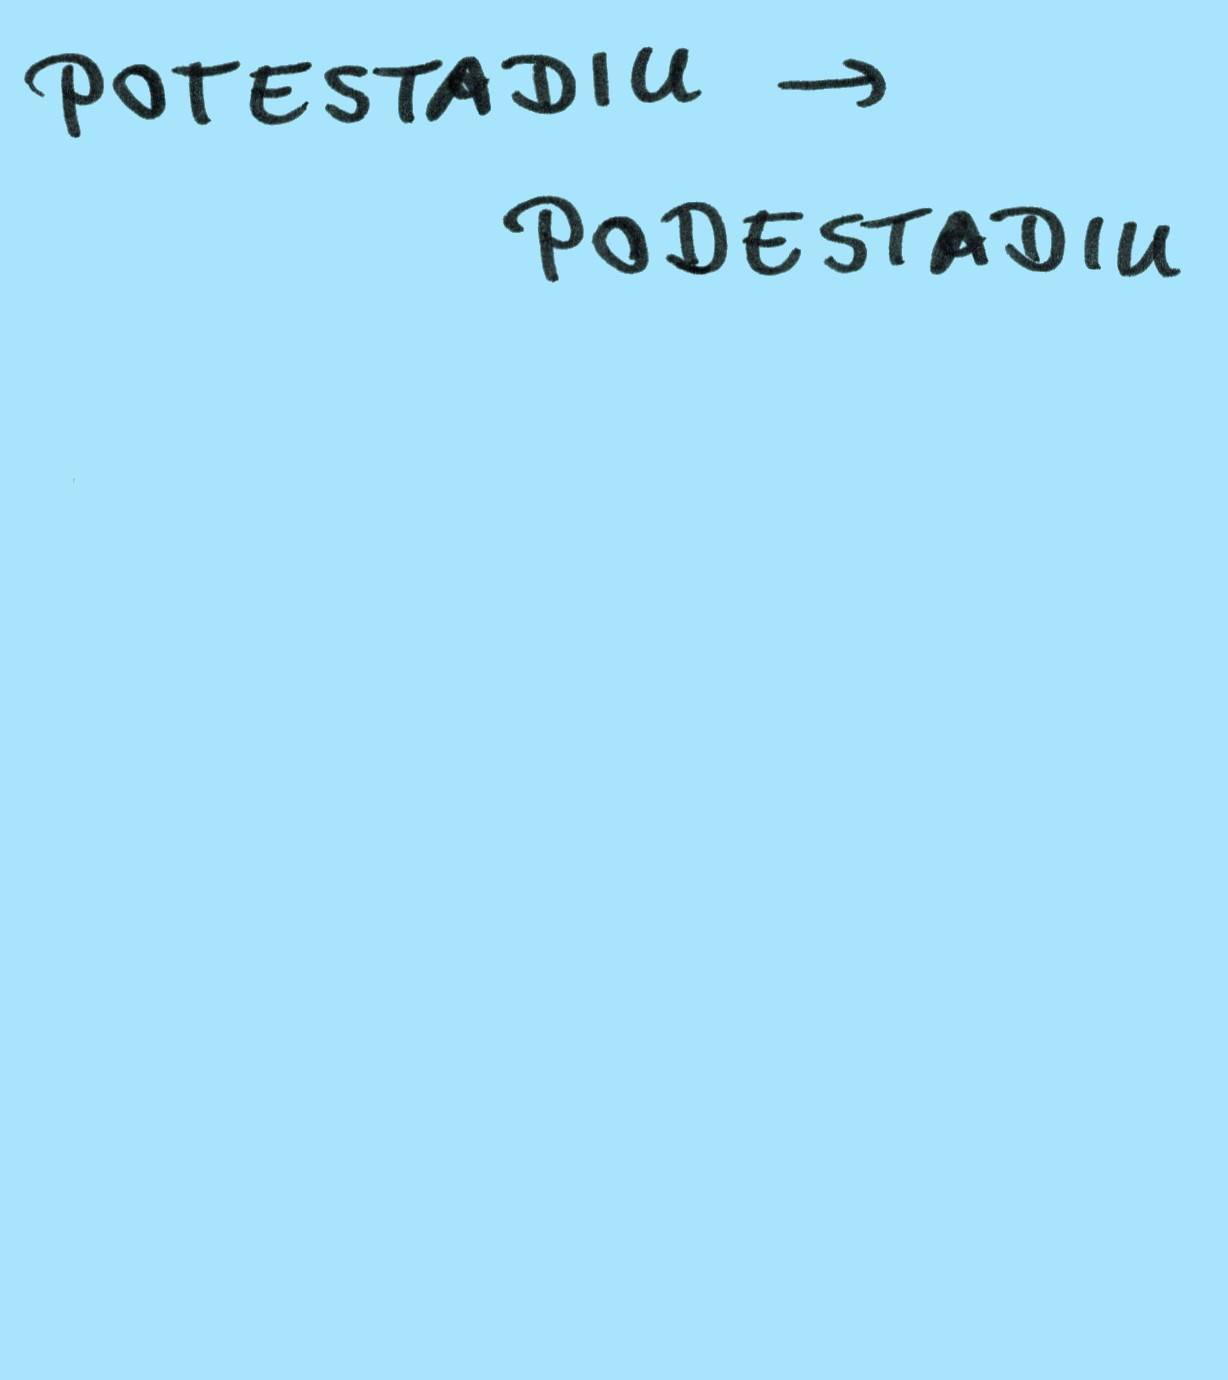 POTESTADIU →
PODESTADIU